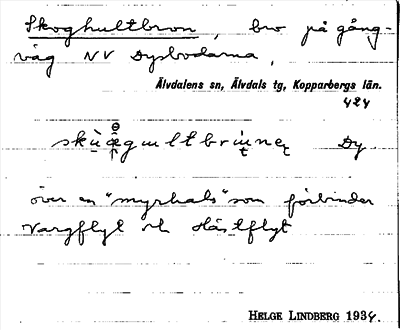 Skoghultbron, bro på gång-
väg NV Dysbodarna,
Älvdalens sn, Älvdals tg, Kopparbergs län.
424
Dy
över en "myrhals" som förbinder
Vargflyt och Hästflyt
HELGE LINDBERG 1934.